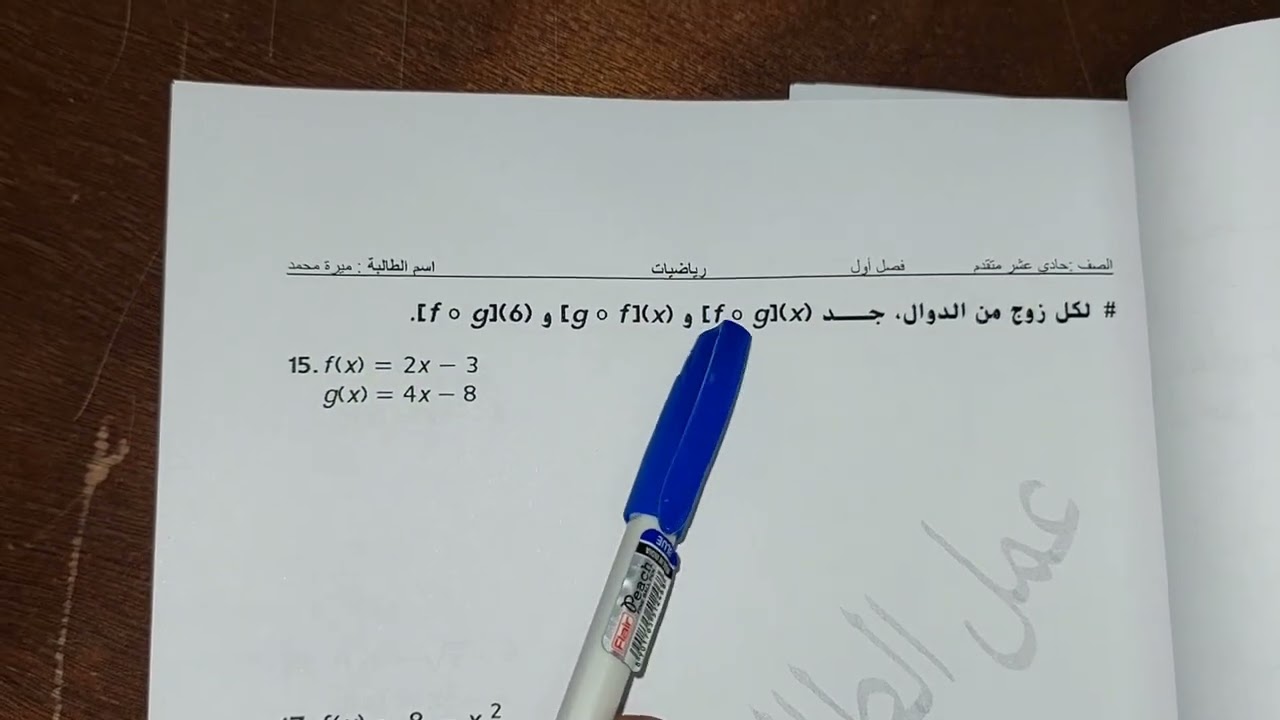 الصف :حادي عشر متقدم فصل أول رياضيات اسم الطالبة : ميرة محمد
# لكل زوج من الدوال، جـــد [f ∘ g](x) و [g ∘ f](x) و [f ∘ g](6).
15. f(x) = 2x − 3
g(x) = 4x − 8
BLUE
Peach
Flair
عمل